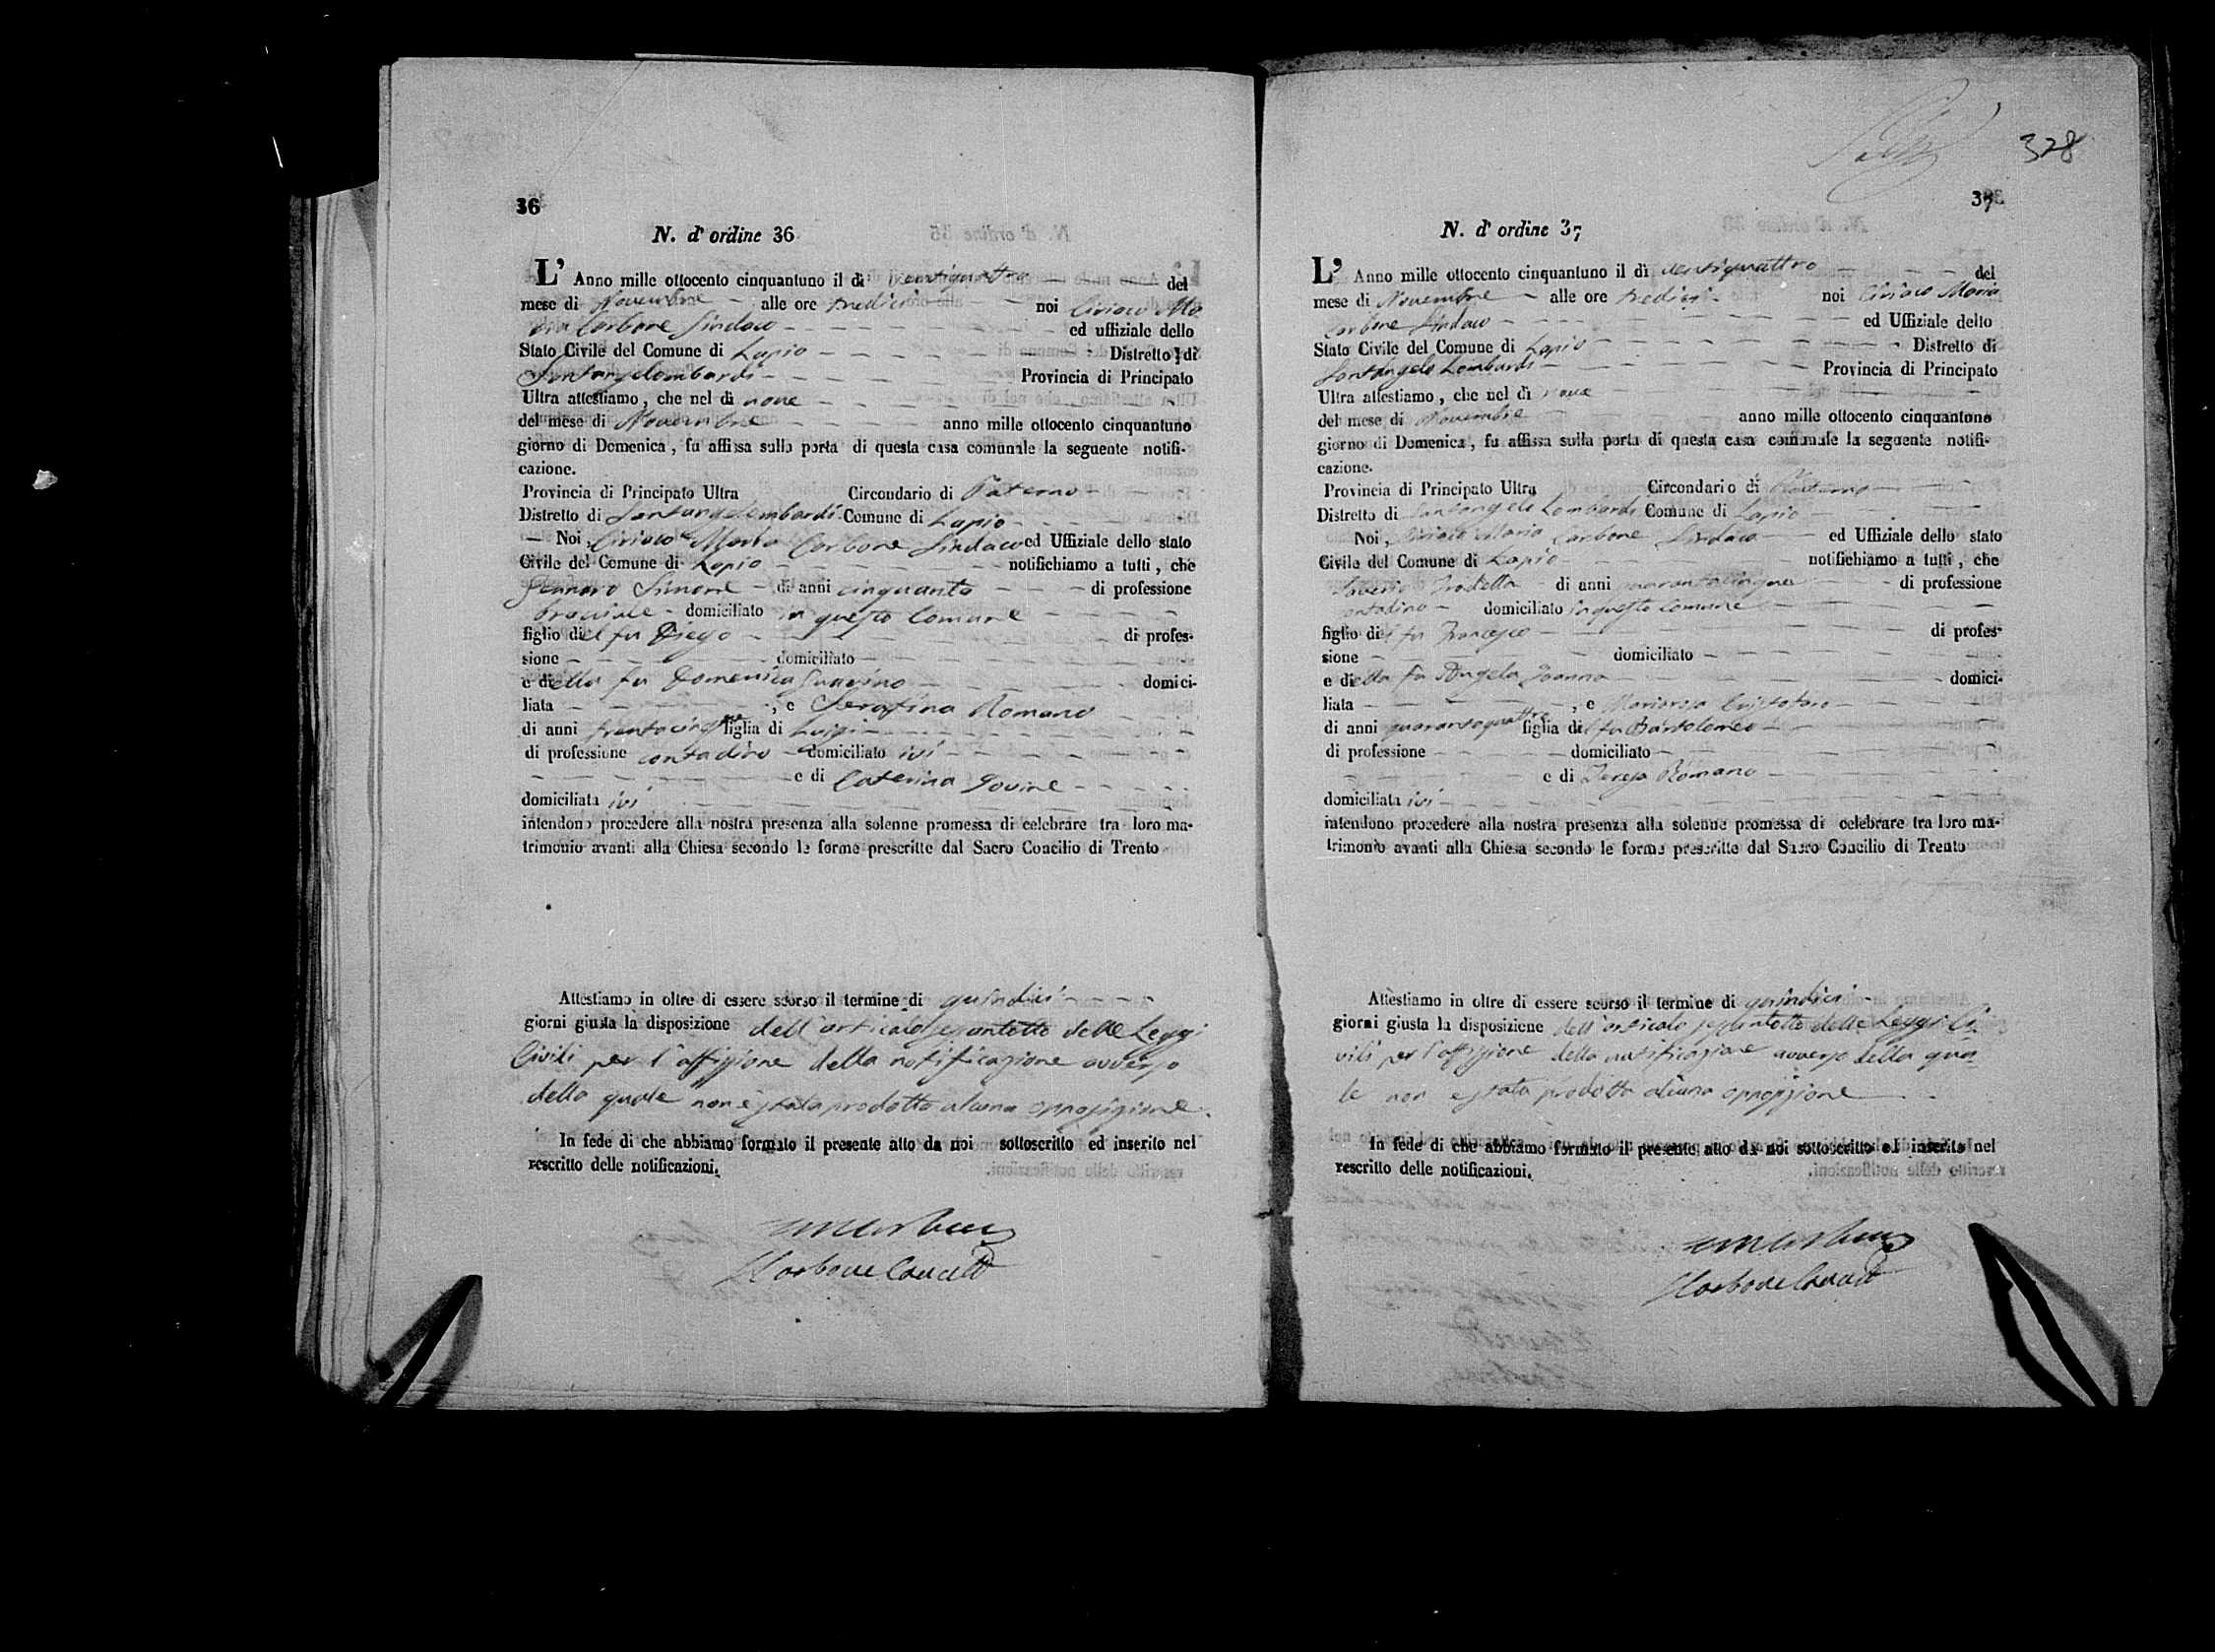 36
N. d' ordine 36
L' Anno mille ottocento cinquantuno il dì ventiquattro del
mese di Novembre alle ore tredici noi Ciriaco Ma
ria Carbone Sindaco ed uffiziale dello
Stato Civile del Comune di Lapio Distretto di
Santangelombardi Provincia di Principato
Ultra attestiamo, che nel di nove
del mese di Novembre anno mille ottocento cinquantuno
giorno di Domenica, fu affissa sulla porta di questa casa comunale la seguente notifi-
cazione.
Provincia di Principato Ultra Circondario di Paterno
Distretto di Santangelombardi Comune di Lapio
Noi, Ciriaco Maria Carbone Sindaco ed Uffiziale dello stato
Civile del Comune di Lapio notifichiamo a tutti, che
Gennaro Simone di anni cinquanta di professione
bracciale domiciliato in questo Comune
figlio del fu Diego di profes-
sione domiciliato
e della fu Domenica domici-
liata , e Serafina Romano
di anni trentacinque figlia di Luigi
di professione contadino domiciliato ivi
e di Caterina Iovine
domiciliata ivi
intendono procedere alla nostra presenza alla solenne promessa di celebrare tra loro ma-
trimonio avanti alla Chiesa secondo le forme prescritte dal Sacro Concilio di Trento
Attestiamo in oltre di essere scorso il termine di quindici
giorni giusta la disposizione dell'articolo sessantotto delle Leggi
Civili per l'affissione della notificazione avverso
della quale non è stata prodotta alcuna opposizione.
In fede di che abbiamo formato il presente atto da noi sottoscritto ed inserito nel
rescritto delle notificazioni.
Carbone Cancell
328
37
N. d' ordine 37
L' Anno mille ottocento cinquantuno il di ventiquattro del
mese di Novembre alle ore tredici noi Ciriaco Maria
Carbone Sindaco ed Uffiziale dello
Stato Civile del Comune di Lapio Distretto di
Santangelo Lombardi Provincia di Principato
Ultra attestiamo, che nel di nove
del mese di Novembre anno mille ottocento cinquantuno
giorno di Domenica, fu affissa sulla porta di questa casa comunale la seguente notifi-
cazione.
Provincia di Principato Ultra Circondario di Paterno
Distretto di Santangelo Lombardi Comune di Lapio
Noi, Ciriaco Maria Carbone Sindaco ed Uffiziale dello stato
Civile del Comune di Lapio notifichiamo a tutti, che
Saverio di anni quarantacinque di professione
contadino domiciliato in questo Comune
figlio del fu Francesco di profes-
sione domiciliato
e della fu Angela Ioanna domici-
liata , e Mariarosa Cristofaro
di anni quarantaquattro figlia del fu Bartolomeo
di professione domiciliato
e di Teresa Romano
domiciliata ivi
intendono procedere alla nostra presenza alla solenne promessa di celebrare tra loro ma-
trimonio avanti alla Chiesa secondo le forme prescritte dal Sacro Concilio di Trento
Attestiamo in oltre di essere scorso il termine di quindici
giorni giusta la disposizione dell'articolo sessantotto delle Leggi Ci-
vili per l'affissione della notificazione avverso della qua-
le non è stata prodotta alcuna opposizione
In fede di che abbiamo formato il presente atto da noi sottoscritto ed inserito nel
rescritto delle notificazioni.
Carbone Cancell